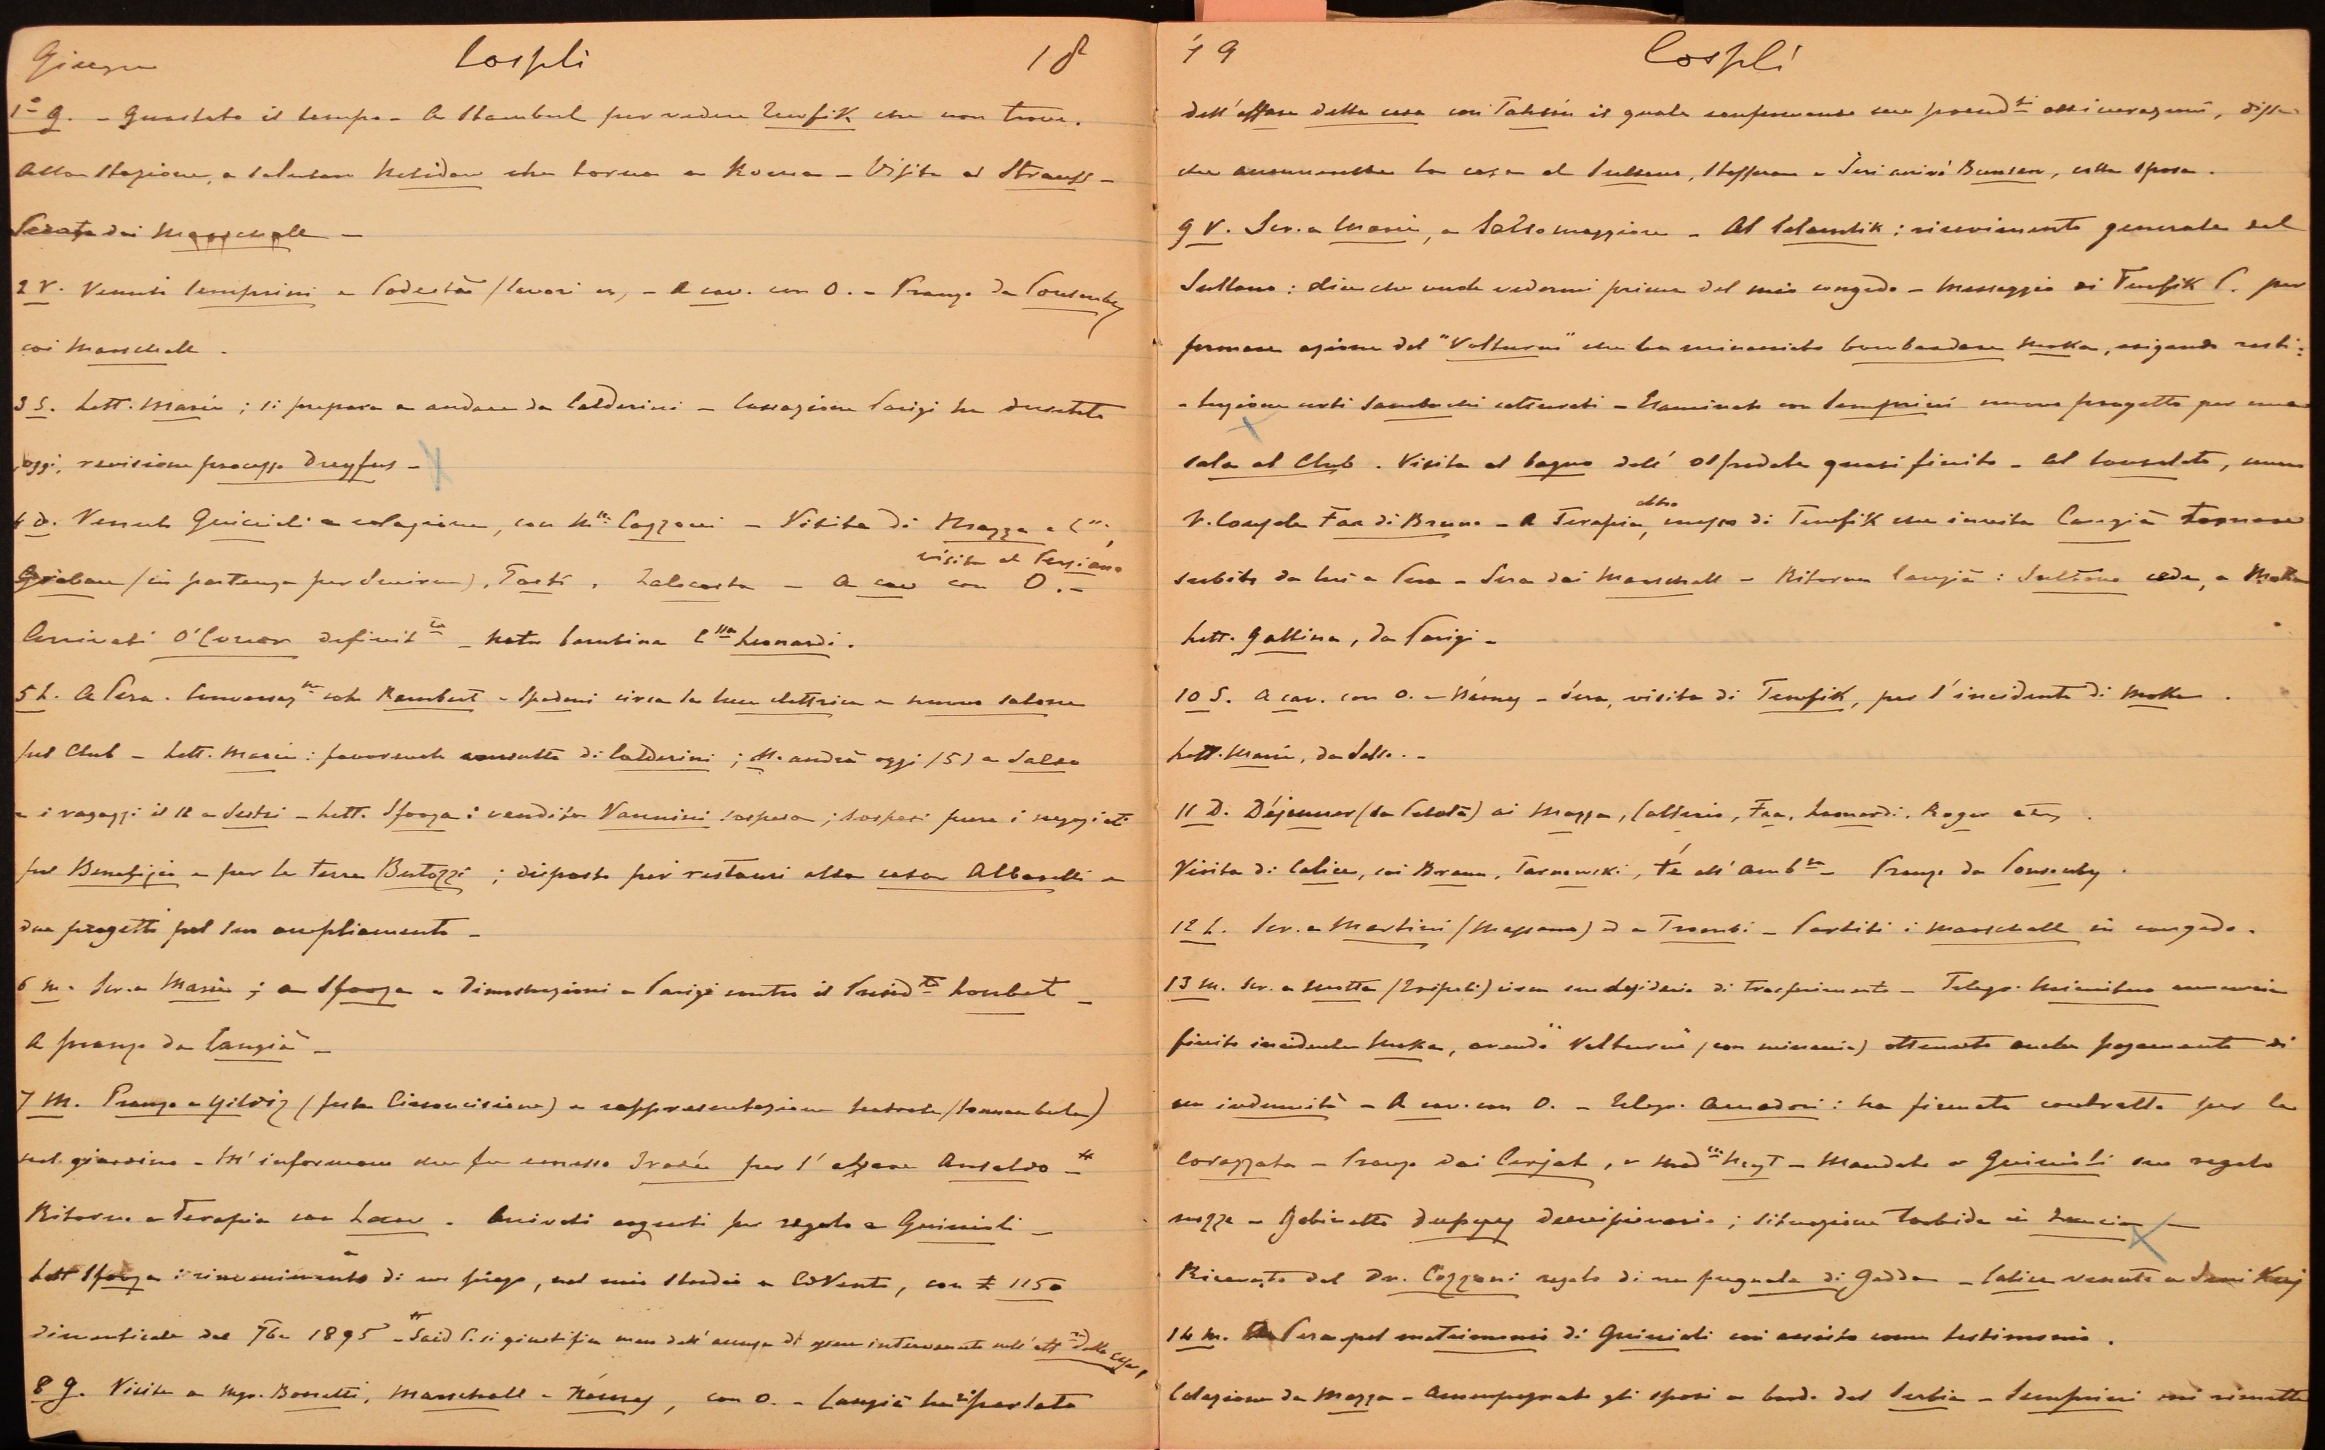 Giugno Cospli 18
1º g. - Guastato il tempo - A Stambul per vedere Tewfik che non trovo.
Alla Stazione, a salutare che torna a Roma - Visita a Strauss -
Serata dai Marschall -
2 V. Venuti Semprini e Podestà (lavori - A cav. con O. - Pranzo da Ponsonby
coi Marschall.
3 S. Lett. Maria ; si prepara a andare da Calderini - Cassazione Parigi ha decretato
oggi, revisione processo Dreyfus -
4 D. Venuto Guicioli a colazione, con Cozzoni - Visita di Mazza e
visita al Persiano
(in partenza per Smirne), Tosti, Zalocosta - A cav con O. -
Arrivati O'Conor definit - Nata bambina Leonardi.
5 L. A Pera. Conversaz con Rambert - Spadoni circa la luce elettrica e nuovo salone
pel Club - Lett. Maria : favorevole consulto di Calderini ; M. andrà oggi (5) a Salso
e i ragazzi il 12 a Sestri - Lett. Sforza : vendita Vannini sospesa ; sospesi pure i negoziati
pel Benefizio e per le terre Bertozzi ; disposto per restauri alla casa Alberelli e
due progetti pel suo ampliamento -
6 M. Scr. a Maria ; a Sforza - Dimostrazioni a Parigi contro il Presid Loubet -
A pranzo da Cangià -
7 M. Pranzo a Yildiz (festa Circoncisione) e rappresentazione teatrale (Sonnambula)
nel giardino - M'informano che fu emesso Iradé per l'affare Ansaldo -
Ritorno a Terapia con - Arrivati argenti per regalo a Guicioli -
Lett Sforza : rinvenimento di un piego, nel mio studio a Convento, con £ 1150
dimenticate dal 7bre 1895 - Said P. si giustifica dell'accusa di essere intervenuto nell'aff della casa,
8 g. Visite a Mgr. Bonetti, Marschall - Némey, con O. - Cangià ha parlato
19 Cospli
dell'affare della casa con Tahsin il quale confermando sue preced assicurazioni, disse
che la cosa al Sultano, - Ieri arrivò Bunsen, colla sposa.
9 V. Scr. a Maria, a Salsomaggiore - Al Selamlik : ricevimento generale dal
Sultano : dice che vuole vedermi prima del mio congedo - Messaggio di Tewfik P. per
fermare azione del "Volturno" che ha minacciato bombardare Moka, esigendo resti:
- tuzione certi Sambuchi catturati - Esaminato con Semprini nuovo progetto per una
sala al Club. Visita al bagno dell'Ospedale quasi finito - Al Consolato, nuovo
altro
V. Console Faa di Bruno - A Terapia, messo di Tewfik che invita Cangià tornare
subito da lui a Pera - Sera dai Marschall - Ritorna Cangià : Sultano cede, a Moka
Lett. Gallina, da Parigi -
10 S. A cav. con O. e Némey - Sera, visita di Tewfik, per l'incidente di Moka.
Lett. Maria, da Salso. -
11 D. Déjeuner (da Podestà) ai Mazza, Faa, Leonardi, Roger
Visita di Calice, coi Braun, Tarnowski, té all'Amb - Pranzo da Ponsonby.
12 L. Scr. a Martini (Massaua) ed a Trombi - Partiti i Marschall in congedo.
13 M. Scr. a Motta (Tripoli) circa suo desiderio di trasferimento - Telegr. annuncia
finito incidente Moka, avendo "Volturno" (con minaccia) ottenuto anche pagamento di
un indennità - A cav. con O. - Telegr. Amadori : ha firmato contratto per la
Corazzata - Pranzo dai Carjat, e - Mandato a Guicioli suo regalo
nozze - Gabinetto Dupuy dimissionario ; situazione torbida in Francia -
Ricevuto dal Dr. Cozzoni regalo di un pugnale di Gedda - Calice venuto a Keuj
14 M. A Pera pel matrimonio di Guicioli cui assisto come testimonio.
Colazione da Mazza - Accompagnato gli sposi a bordo del Serbia - Semprini mi rimette